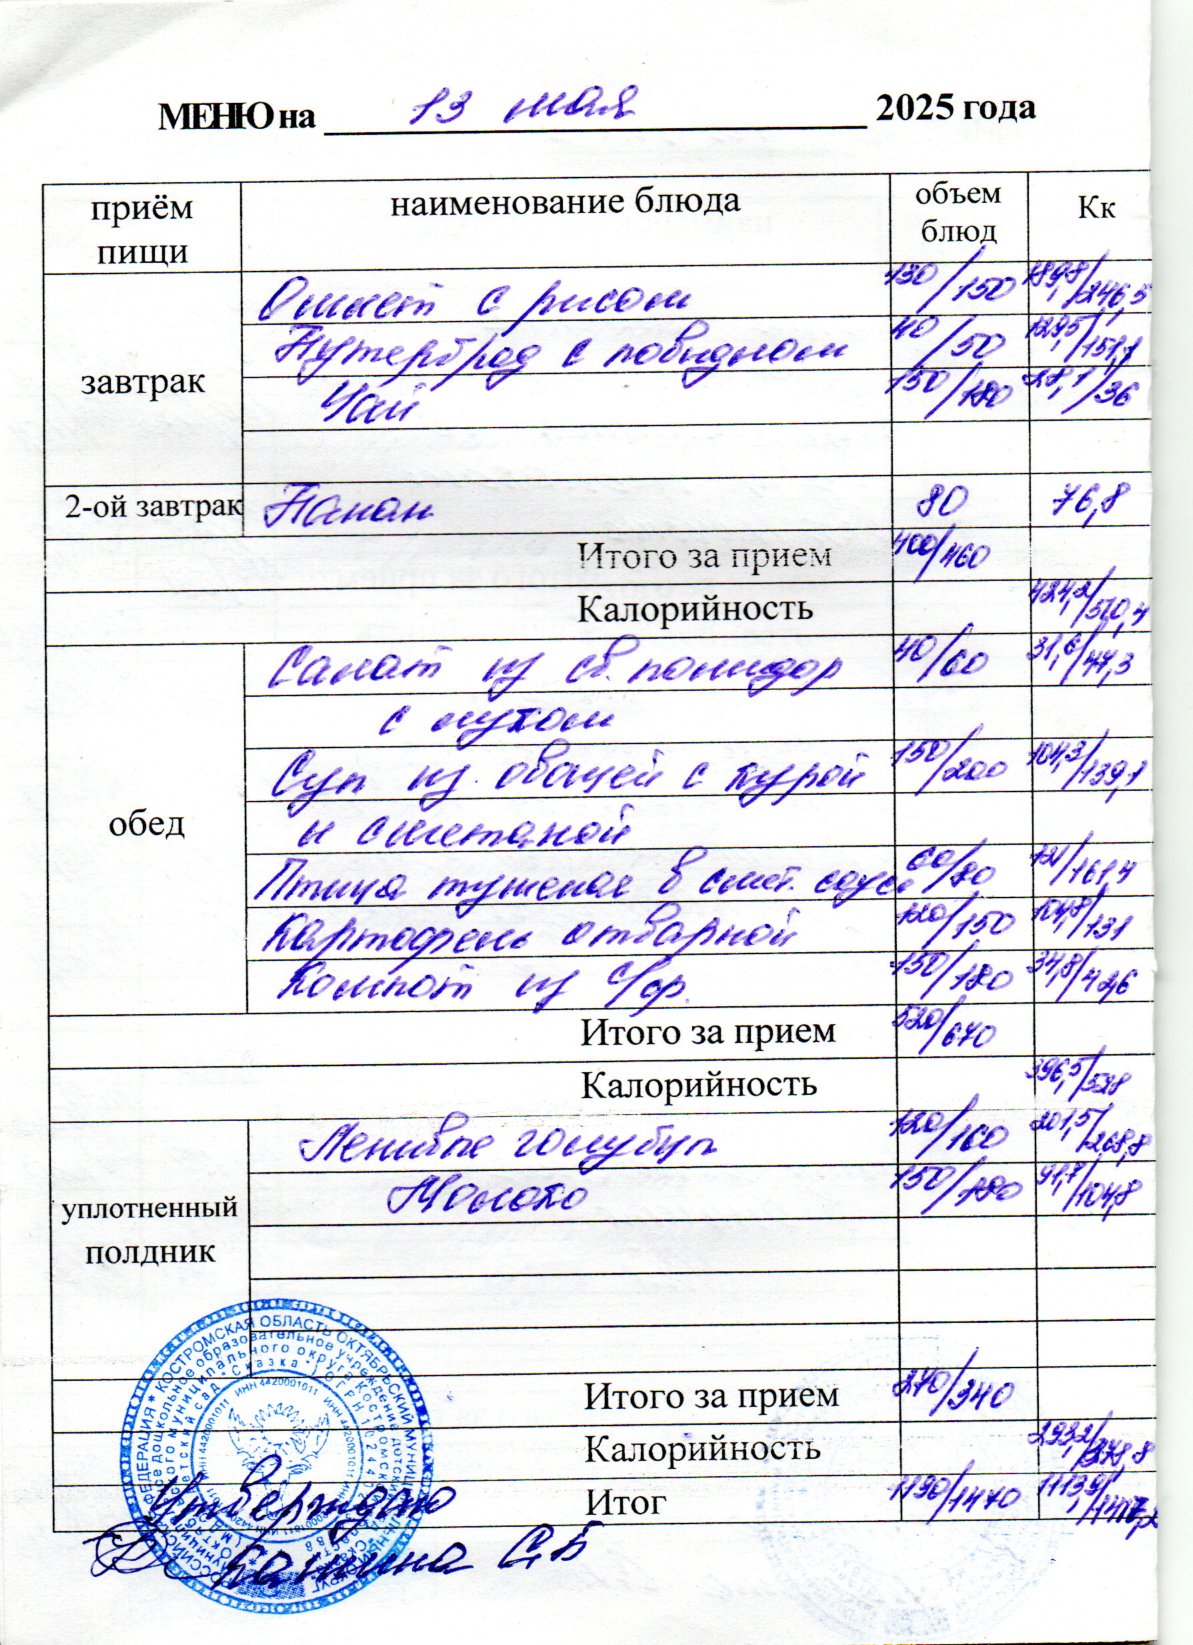 МЕНЮ на 13 мая 2025 года
приём пищи наименование блюда объем блюд Кк
завтрак
Омлет с рисом 130/150 189,8/246,5
Бутерброд с повидлом 40/50 129,5/151,1
Чай 150/180 28,1/36
2-ой завтрак Банан 80 76,8
Итого за прием 400/460
Калорийность 424,2/510,4
обед
Салат из св. помидор 40/60 31,6/47,3
с луком
Суп из овощей с курой 150/200 104,3/139,1
и сметаной
Птица тушеная в смет. соусе 60/80 121/161,4
Картофель отварной 120/150 104,8/131
Компот из с/фр. 150/180 34,8/42,6
Итого за прием 520/670
Калорийность 396,5/528
уплотненный полдник
Ленивые голубцы 120/160 201,5/268,8
Молоко 150/180 91,7/104,8
Итого за прием 270/340
Калорийность 293,2/
Итог 1190/1470 1113,9/
КОСТРОМСКАЯ ОБЛАСТЬ ОКТЯБРЬСКИЙ
дошкольное образовательное учреждение
муниципального округа Костромской
детский сад "Сказка"
ИНН 4420001011
Утверждаю
С.Б